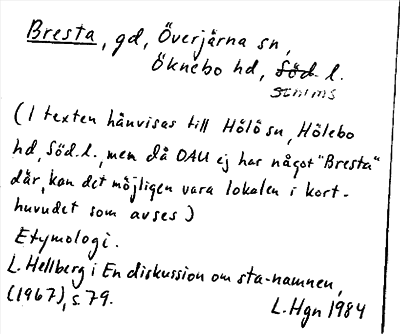 Bresta, gd, Överjärna sn,
Öknebo hd, Söd. l.
Sthlms
(I texten hänvisas till Hölö sn, Hölebo
hd, Söd. l., men då OAU ej har något "Bresta"
där, kan det möjligen vara lokalen i kort-
huvudet som avses)
Etymologi.
L. Hellberg i En diskussion om sta-namnen,
(1967), s. 79.
L. Hgn 1984